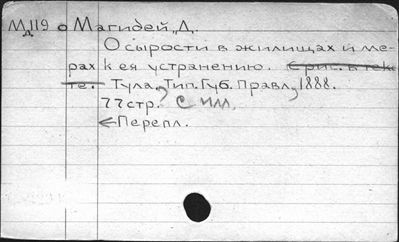 Мд119 о Магидей, Д.
О сырости в жилищах и ме-
рах к ея устранению. С рис. в тек-
те. Тула, Тип. Губ. Правл., 1888.
77 стр. С илл.
← Перепл.